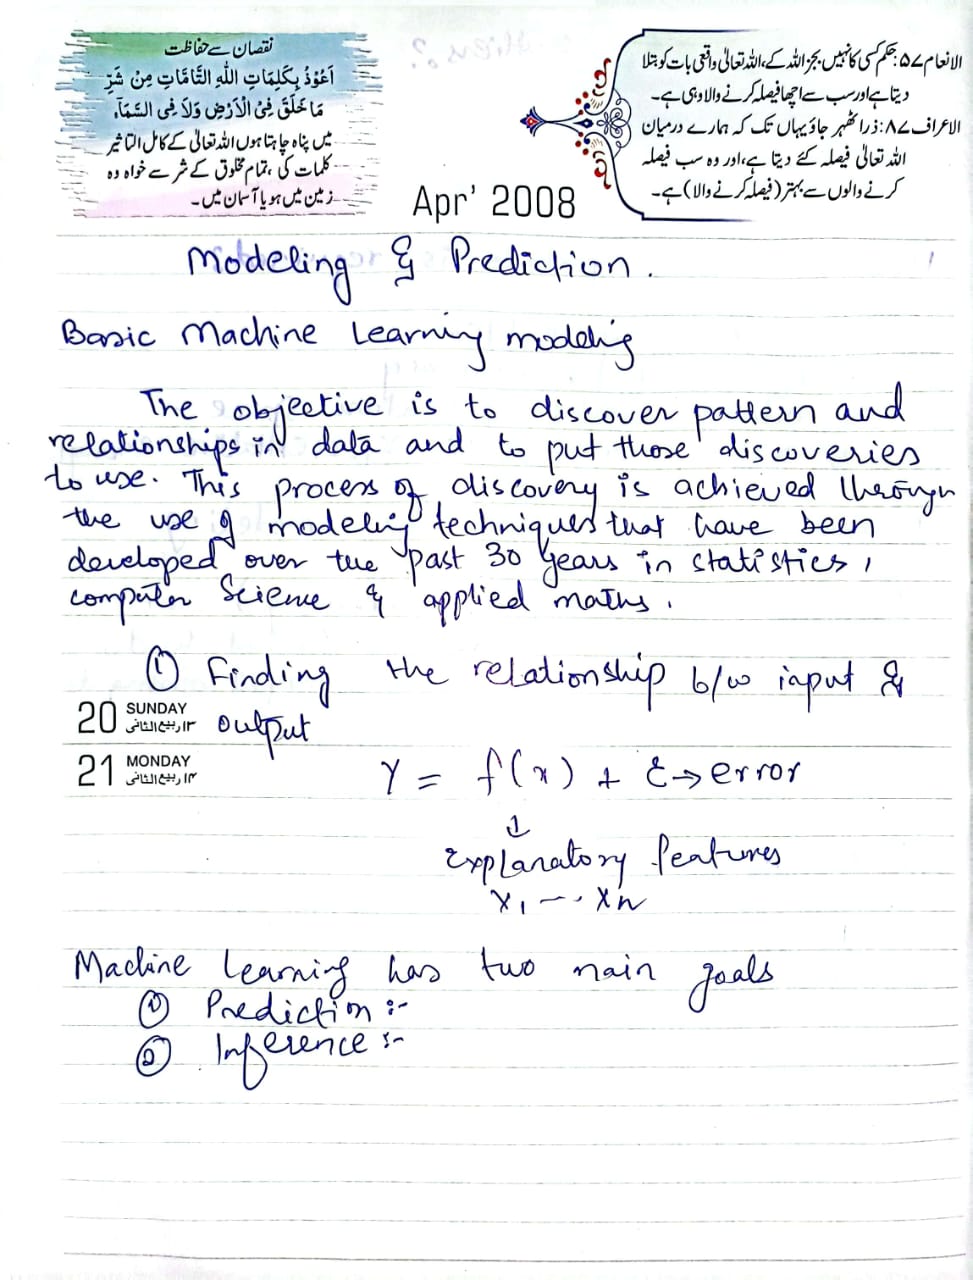 نقصان سے حفاظت
اَعُوْذُ بِكَلِمَاتِ اللّٰهِ التَّامَّاتِ مِنْ شَرِّ
مَا خَلَقَ فِي الْاَرْضِ وَلَا فِي السَّمَآءِ
میں پناہ چاہتا ہوں اللہ تعالیٰ کے کامل التاثیر
کلمات کی ،تمام مخلوق کے شر سے خواہ وہ
زمین میں ہو یا آسمان میں۔
الانعام ۵۷: حکم کسی کا نہیں بجز اللہ کے، اللہ تعالیٰ واقعی بات کو بتلا
دیتا ہے اور سب سے اچھا فیصلہ کرنے والا وہی ہے۔
الاعراف ۸۷: ذرا ٹھہر جاؤ یہاں تک کہ ہمارے درمیان
اللہ تعالیٰ فیصلہ کئے دیتا ہے، اور وہ سب فیصلہ
کرنے والوں سے بہتر (فیصلہ کرنے والا) ہے۔
Apr' 2008
Modeling & Prediction.
Basic Machine Learning modeling
The objective is to discover pattern and
relationships in data and to put those discoveries
to use. This process of discovery is achieved through
the use of modeling techniques that have been
developed over the past 30 years in statistics,
computer Science & applied maths.
① Finding the relationship b/w input &
20 SUNDAY ۱۳ ربیع الثانی output
21 MONDAY ۱۴ ربیع الثانی
Y = f(x) + ε → error
↓
Explanatory features
x₁ --- xn
Machine Learning has two main goals
① Prediction :-
② Inference :-